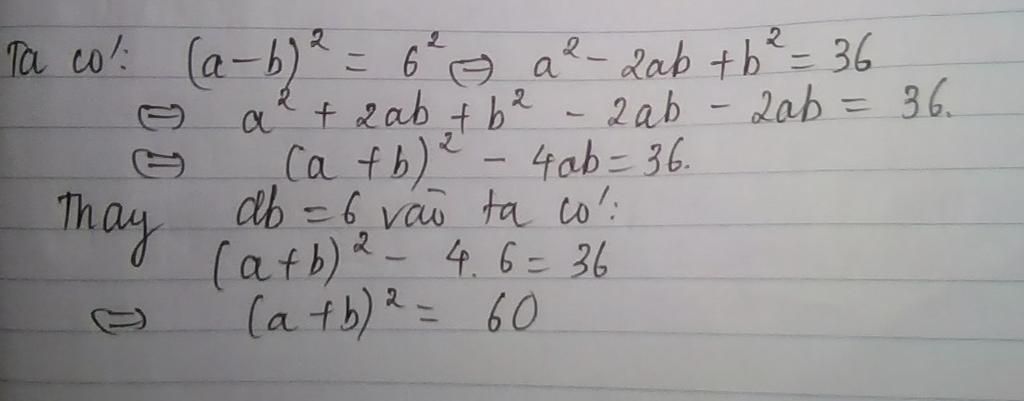 Ta có: (a-b)² = 6² ⇔ a² - 2ab + b² = 36
⇔ a² + 2ab + b² - 2ab - 2ab = 36.
⇔ (a + b)² - 4ab = 36.
Thay ab = 6 vào ta có:
(a+b)² - 4. 6 = 36
⇔ (a+b)² = 60